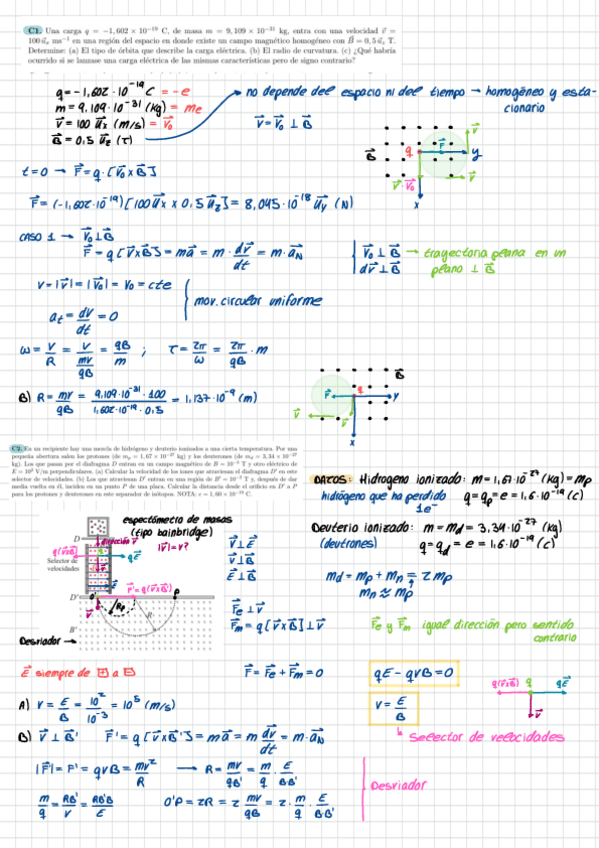 C1. Una carga q = −1,602 × 10⁻¹⁹ C, de masa m = 9,109 × 10⁻³¹ kg, entra con una velocidad v⃗ =
100 u⃗ₓ ms⁻¹ en una región del espacio en donde existe un campo magnético homogéneo con B⃗ = 0,5 u⃗z T.
Determine: (a) El tipo de órbita que describe la carga eléctrica. (b) El radio de curvatura. (c) ¿Qué habría
ocurrido si se lanzase una carga eléctrica de las mismas características pero de signo contrario?
q = -1,602·10⁻¹⁹ C = -e
m = 9,109·10⁻³¹ (kg) = me
v⃗ = 100 u⃗x (m/s) = v⃗₀
B⃗ = 0,5 u⃗z (T)
no depende del espacio ni del tiempo → homogéneo y esta-
cionario
v⃗ = v⃗₀ ⊥ B⃗
B⃗
q
F⃗
v⃗
y
v⃗
v⃗=v⃗₀
x
t=0 → F⃗ = q·[v⃗₀ x B⃗]
F⃗ = (-1,602·10⁻¹⁹)[100 u⃗x x 0,5 u⃗z] = 8,045·10⁻¹⁸ u⃗y (N)
CASO 1 → v⃗₀ ⊥ B⃗
F⃗ = q[v⃗ x B⃗] = ma⃗ = m · dv⃗/dt = m·a⃗N
v⃗₀ ⊥ B⃗ → trayectoria plana en un
dv⃗ ⊥ B⃗ plano ⊥ B⃗
v = |v⃗| = |v⃗₀| = v₀ = cte
mov. circular uniforme
at = dv/dt = 0
ω = v/R = v/(mv/qB) = qB/m ; T = 2π/ω = 2π/qB · m
B) R = mv/qB = 9,109·10⁻³¹·100/1,602·10⁻¹⁹·0,5 = 1,137·10⁻⁹ (m)
B⃗
q
F⃗
y
v⃗
v⃗
x
C2. En un recipiente hay una mezcla de hidrógeno y deuterio ionizados a una cierta temperatura. Por una
pequeña abertura salen los protones (de mp = 1,67 × 10⁻²⁷ kg) y los deuterones (de md = 3,34 × 10⁻²⁷
kg). Los que pasan por el diafragma D entran en un campo magnético de B = 10⁻³ T y otro eléctrico de
E = 10² V/m perpendiculares. (a) Calcular la velocidad de los iones que atraviesan el diafragma D' en este
selector de velocidades. (b) Los que atraviesan D' entran en una región de B' = 10⁻³ T y, después de dar
media vuelta en él, inciden en un punto P de una placa. Calcular la distancia desde el orificio en D' a P
para los protones y deuterones en este separador de isótopos. NOTA: e = 1,60 × 10⁻¹⁹ C.
DATOS: Hidrogeno ionizado: m = 1,67·10⁻²⁷ (kg) = mp
hidrógeno que ha perdido q = qp = e = 1,6·10⁻¹⁹ (C)
1e⁻
Deuterio ionizado: m = md = 3,34·10⁻²⁷ (kg)
(deutrones) q = qd = e = 1,6·10⁻¹⁹ (C)
md = mp + mn = 2mp
mn ≈ mp
espectómetro de masas
(tipo bainbridge)
D
dirección v⃗
|v⃗| = v?
q(v⃗xB⃗)
qE⃗
Selector de
velocidades
D'
O'
F⃗' = q(v⃗xB⃗')
P
Rp
R
v⃗
B'
Desviador →
v⃗ ⊥ E⃗
v⃗ ⊥ B⃗
E⃗ ⊥ B⃗
F⃗e ⊥ v⃗
F⃗m = q[v⃗xB⃗] ⊥ v⃗
F⃗e y F⃗m igual dirección pero sentido
contrario
E⃗ siempre de + a -
F⃗ = F⃗e + F⃗m = 0
qE - qvB = 0
q(v⃗xB⃗)
q
qE⃗
v⃗
A) v = E/B = 10²/10⁻³ = 10⁵ (m/s)
v = E/B
↳ Selector de velocidades
B) v⃗ ⊥ B⃗' F⃗' = q[v⃗xB⃗'] = ma⃗ = m dv⃗/dt = m·a⃗N
|F⃗'| = F' = qvB = mv²/R → R = mv/qB' = m/q · E/B·B'
Desviador
m/q = RB'/v = RB'B/E O'P = 2R = 2 mv/qB' = 2 · m/q · E/B·B'